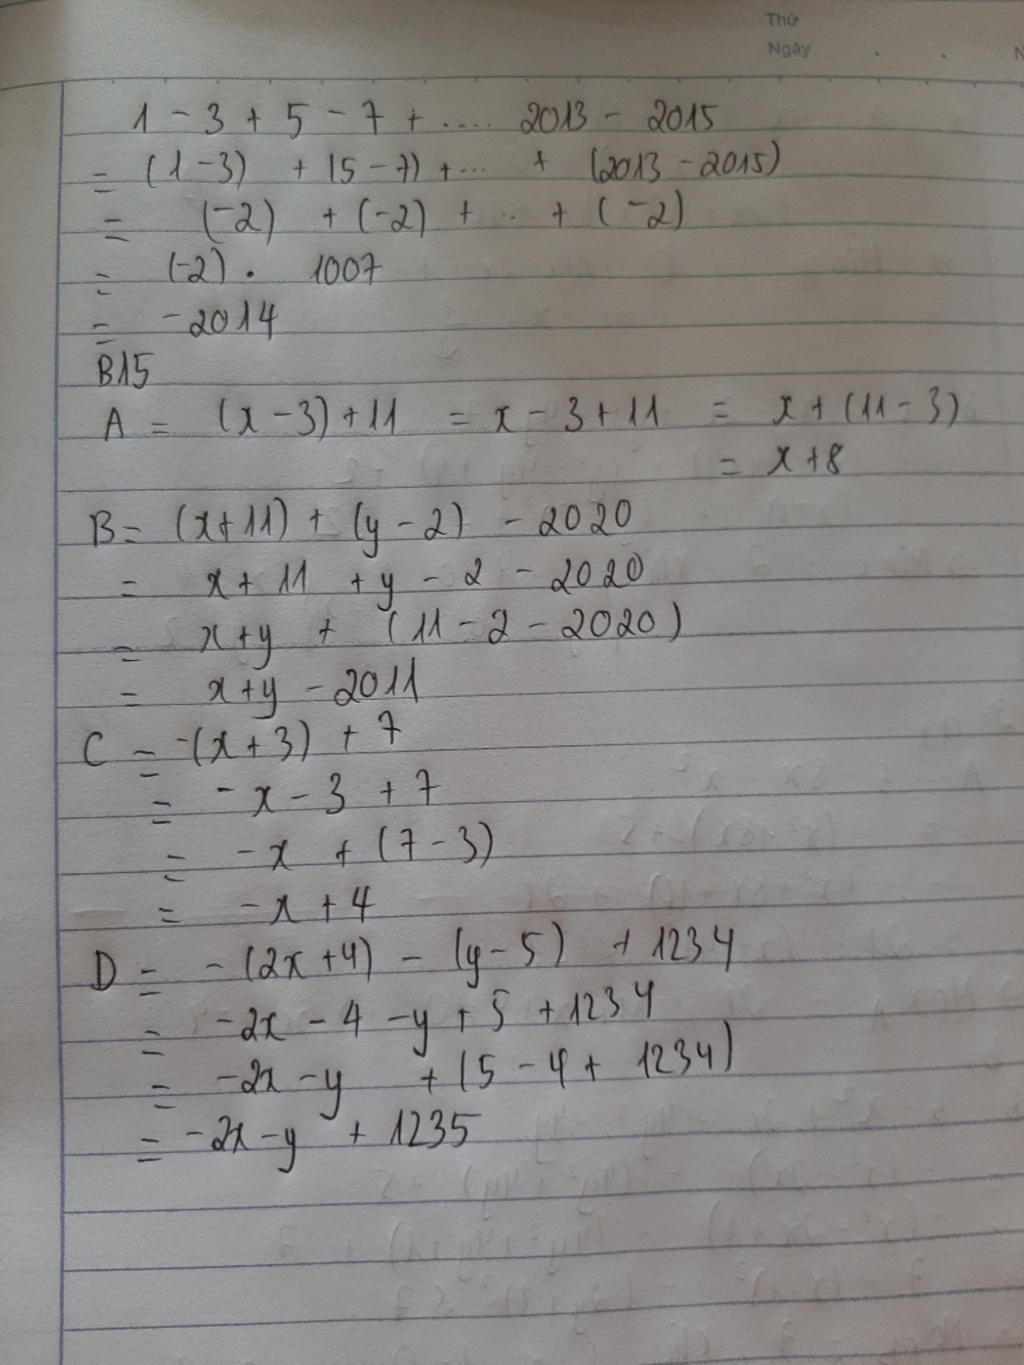 Thứ
Ngày . . N
1 - 3 + 5 - 7 + .... 2013 - 2015
= (1-3) + (5-7) + ... + (2013 - 2015)
= (-2) + (-2) + .. + (-2)
= (-2) . 1007
= -2014
B15
A = (x-3)+11 = x - 3 + 11 = x + (11-3)
= x+8
B = (x+11) + (y-2) - 2020
= x + 11 + y - 2 - 2020
= x+y + (11-2-2020)
= x+y - 2011
C = -(x+3) + 7
= -x - 3 + 7
= -x + (7-3)
= -x + 4
D = -(2x+4) - (y-5) + 1234
= -2x - 4 - y + 5 + 1234
= -2x - y + (5 - 4 + 1234)
= -2x - y + 1235